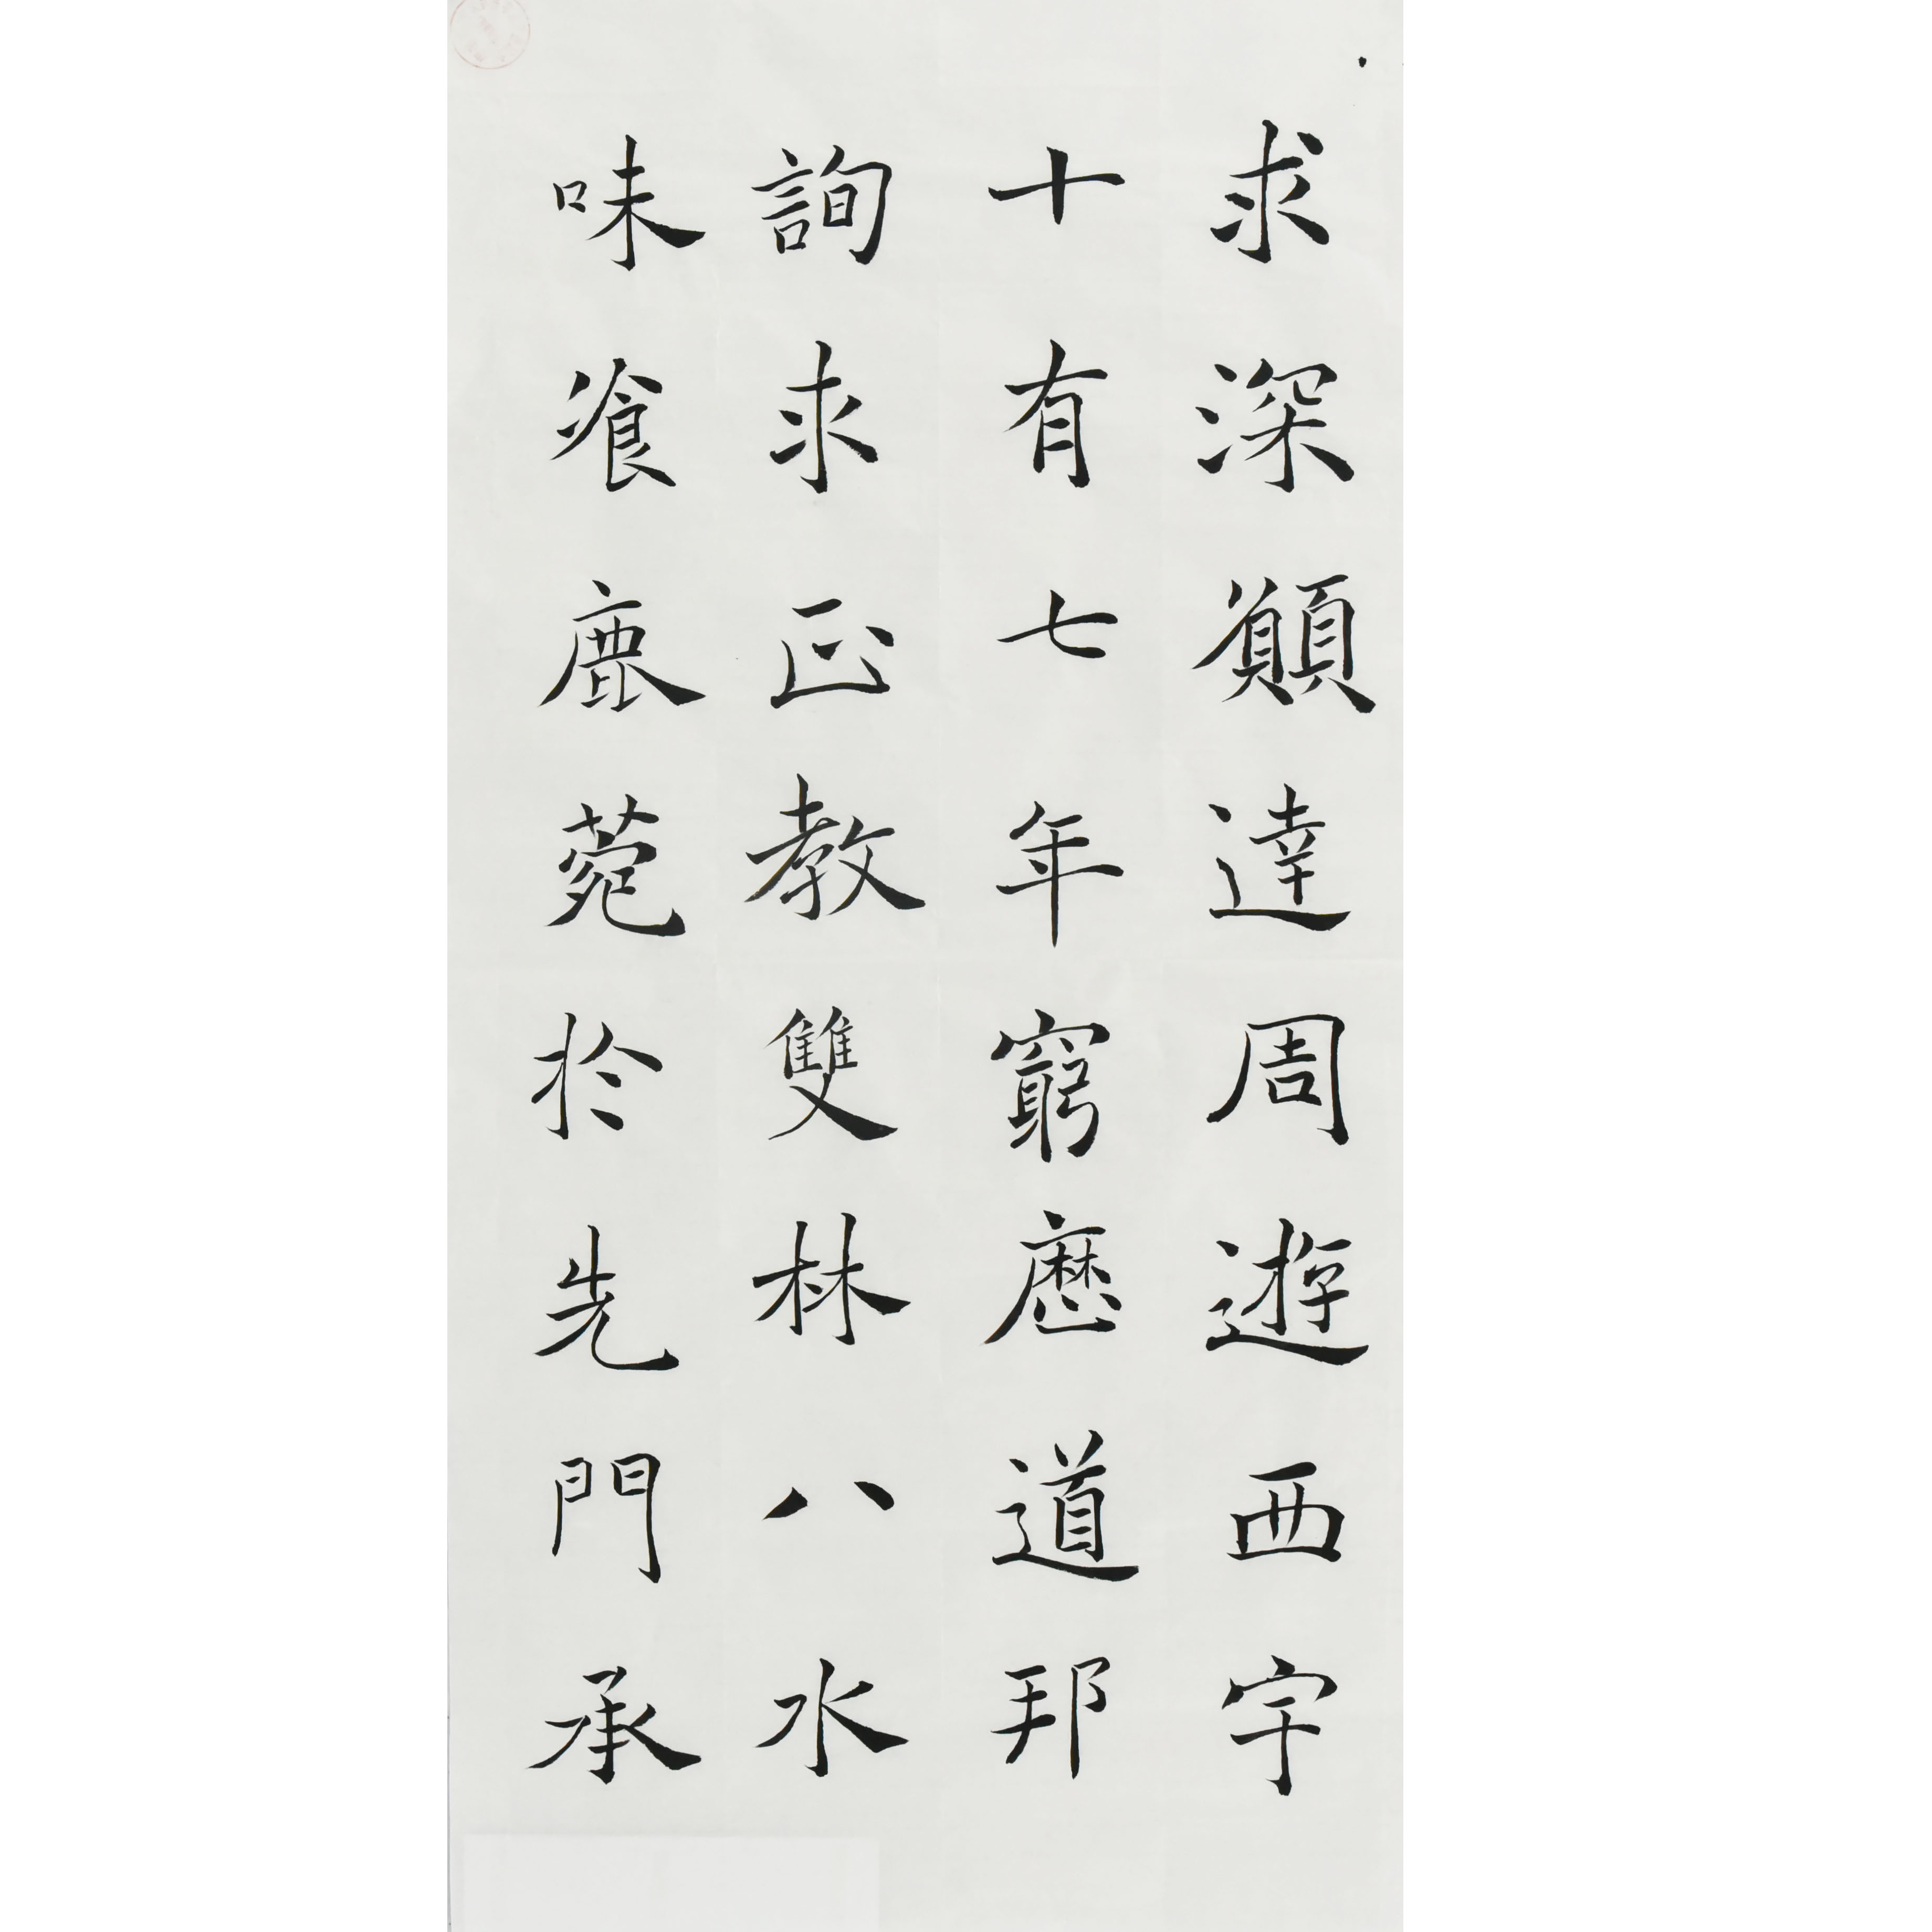 求深願達周遊西宇
十有七年窮歷道邦
詢求正教雙林八水
味飡鹿菀於先門承